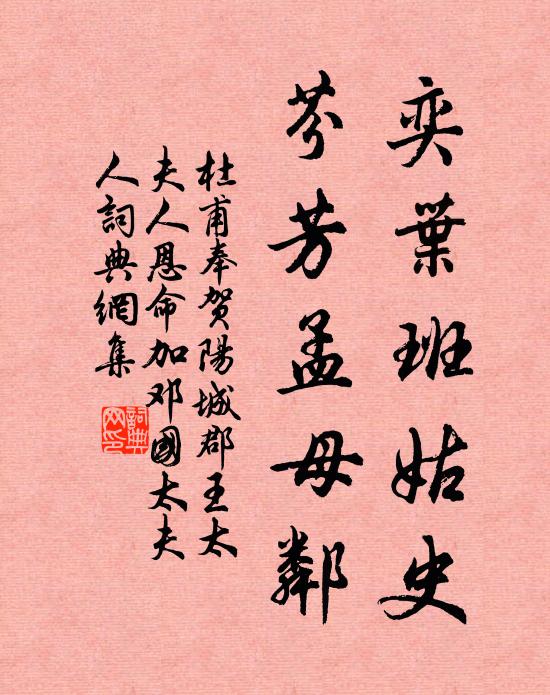 奕葉班姑史
芬芳孟母鄰
杜甫奉贺陽城郡王太
夫人恩命加邓國太夫
人詞典網集
詞典網印